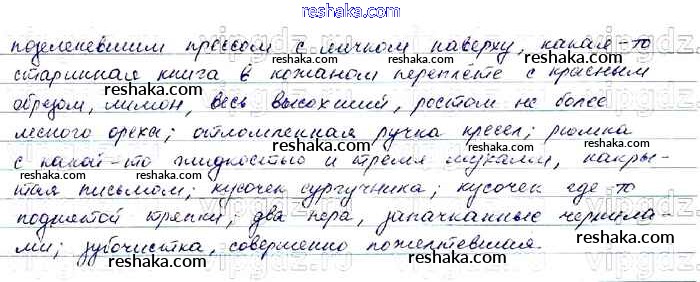 позеленевшим прессом с яичком наверху, какая-то
старинная книга в кожаном переплёте с красным
обрезом, лимон, весь высохший, ростом не более
лесного ореха; отломленная ручка кресел; рюмка
с какой-то жидкостью и тремя мухами, накры-
тая письмом; кусочек сургучика; кусочек где-то
поднятой тряпки; два пера, запачканные чернила-
ми; зубочистка, совершенно пожелтевшая.
reshaka.com
reshaka.com
reshaka.com
reshaka.com
reshaka.com
reshaka.com
reshaka.com
reshaka.com
reshaka.com
reshaka.com